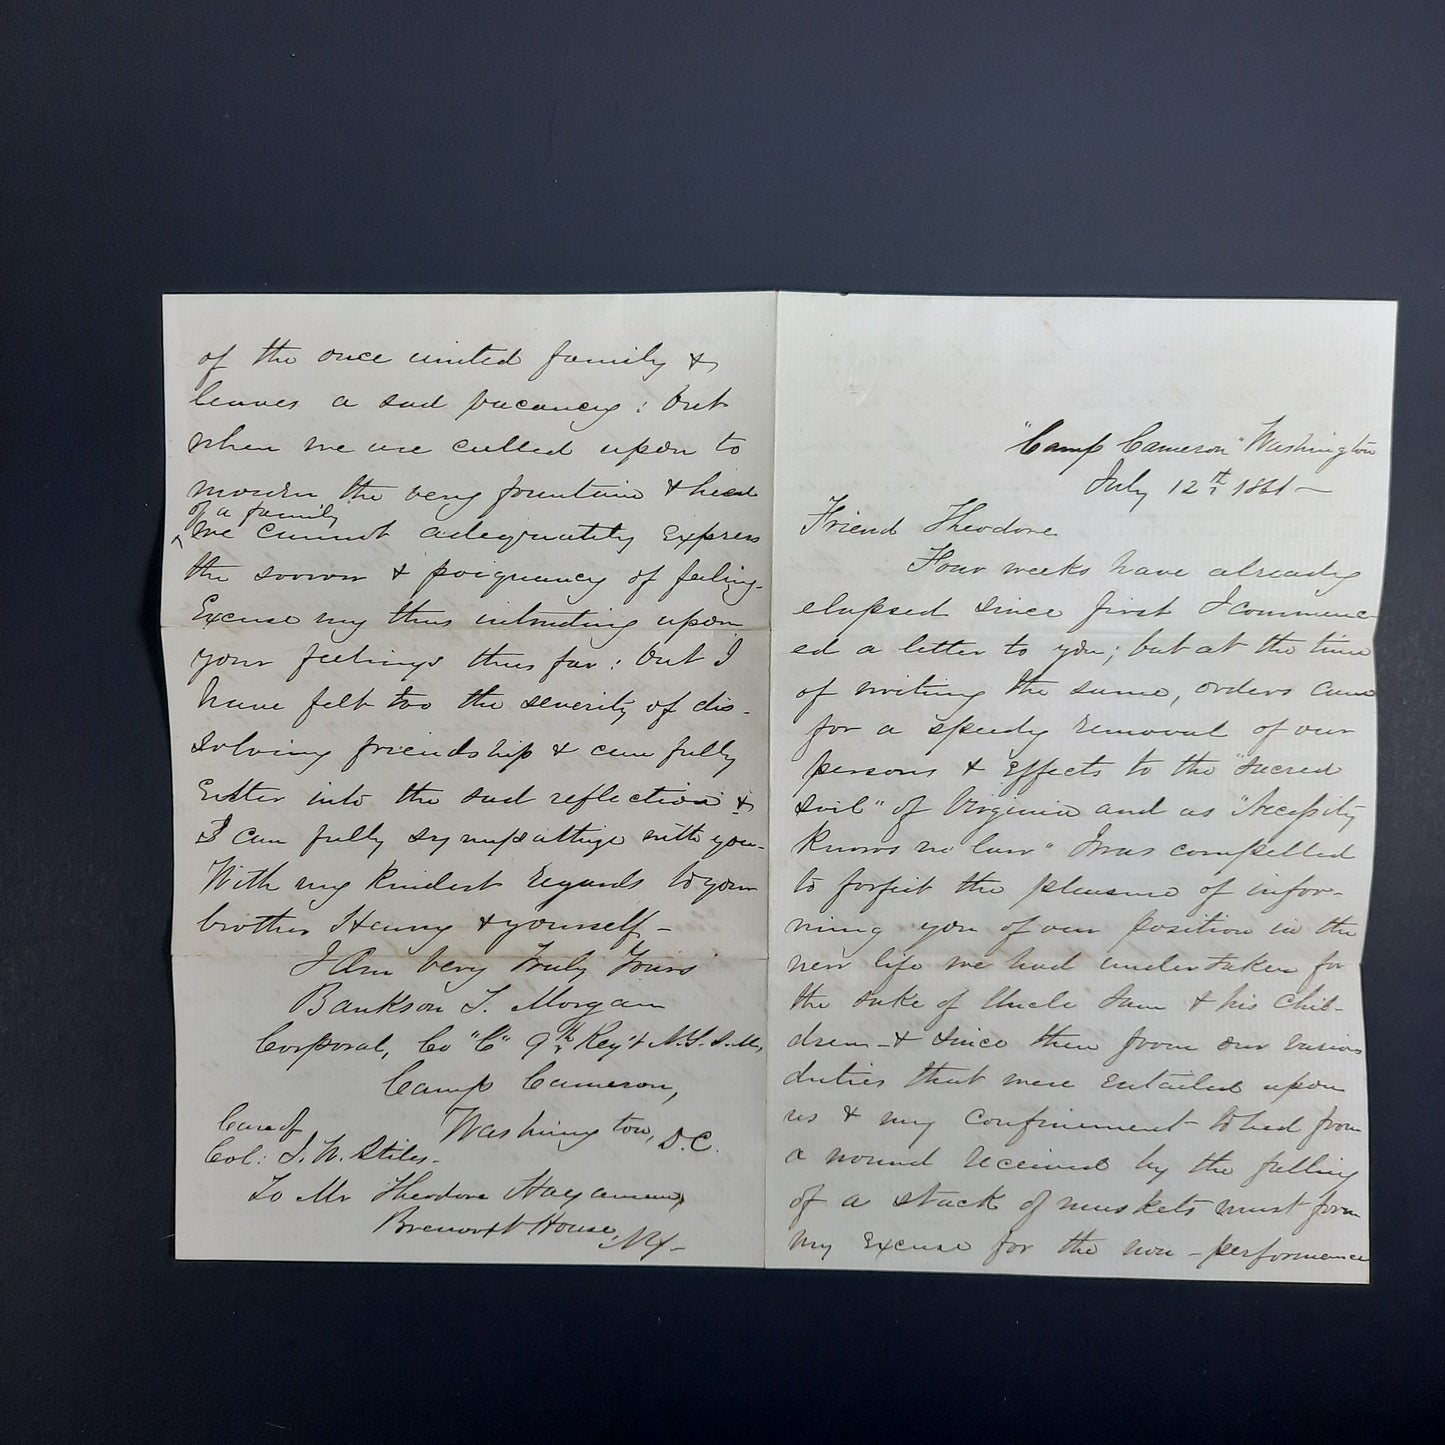 "Camp Cameron" Washington
July 12th 1861 —
Friend Theodore
Four weeks have already
elapsed since first I commenc
ed a letter to you; but at the time
of writing the same, orders came
for a speedy removal of our
persons & effects to the "sacred
soil" of Virginia and as "Necessity
knows no law" I was compelled
to forfeit the pleasure of infor-
ming you of our position in the
new life we had undertaken for
the sake of Uncle Sam & his Chil-
dren - & since then from our various
duties that were entailed upon
us & my confinement to bed from
a wound received by the falling
of a stack of muskets must form
my excuse for the non-performance
of the once united family &
leaves a sad vacancy: but
when we are called upon to
mourn the very fountain & head
of a family
we cannot adequately express
the sorrow & poignancy of feeling-
Excuse my thus intruding upon
your feelings thus far: but I
have felt too the severity of dis-
solving friendship & can fully
Enter into the sad reflection &
I can fully sympathize with you-
With my kindest regards to your
brother Henry & yourself -
I Am Very Truly Yours
Bankson T. Morgan
Corporal, Co "C" 9th Reg't N.Y.S.M,
Camp Cameron,
Washington, D.C.
Care of
Col: J. W. Stiles-
To Mr Theodore
Brevoort House, NY-